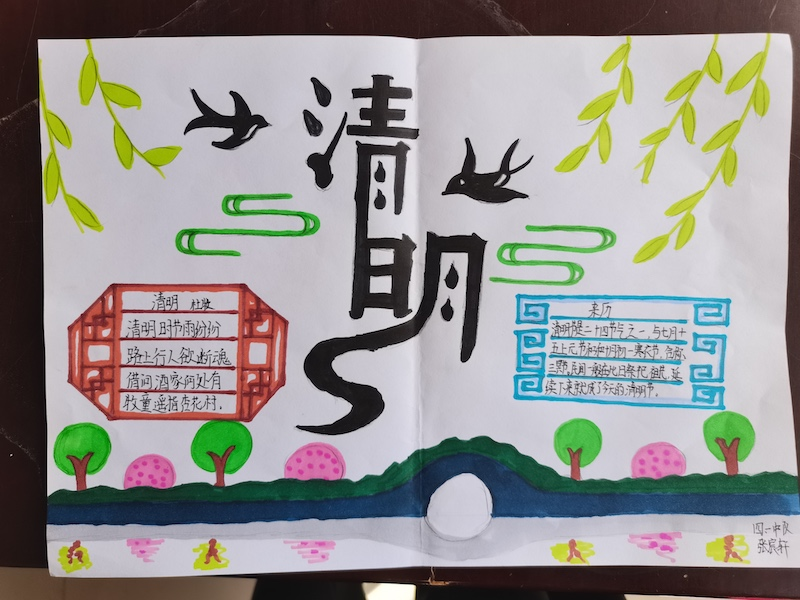 清明
清明 杜牧
清明日节雨纷纷
路上行人欲断魂
借问酒家何处有
牧童遥指杏花村。
来历
清明是二十四节气之一,与七月十
五上元节和十月初一寒衣节,俗称
三冥节,民间一般在此日祭祀祖民,延
续下来就成了今天的清明节。
四一中队
张宸轩